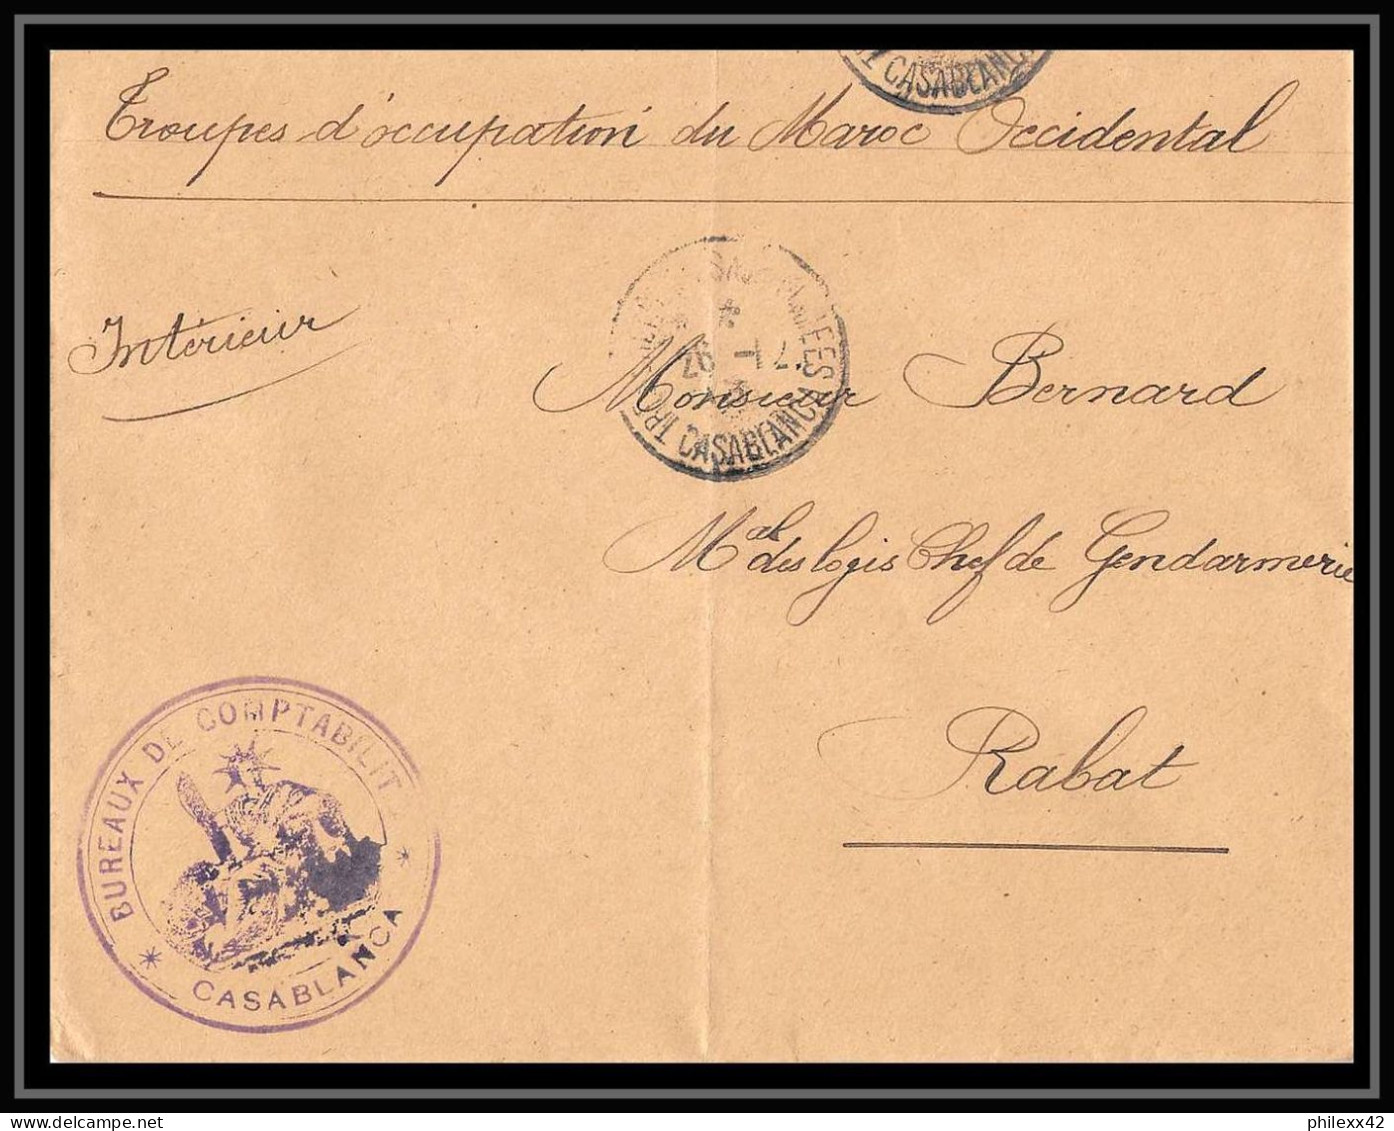 CASABLANCA
Troupes d'occupation du Maroc Occidental
Intérieur
CASABLANCA
Monsieur Bernard
Mal des logis Chef de Gendarmerie
Rabat
BUREAUX DE COMPTABILIT
CASABLANCA
philexx42